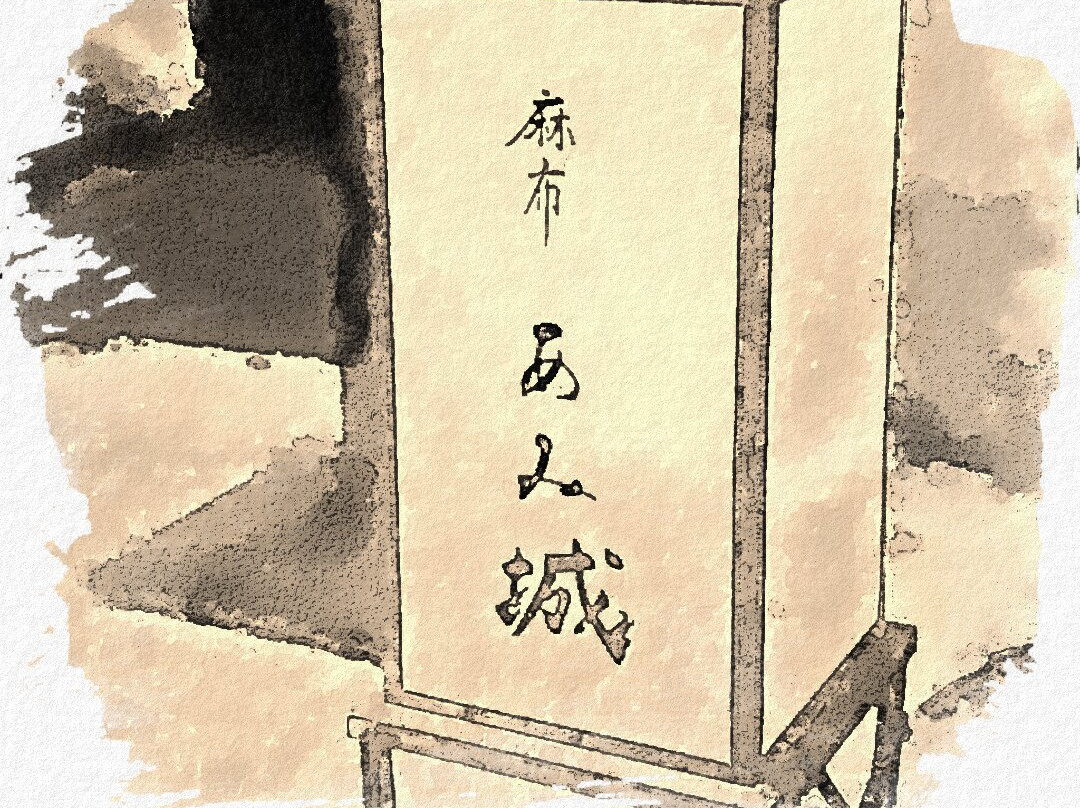 麻布 あみ城